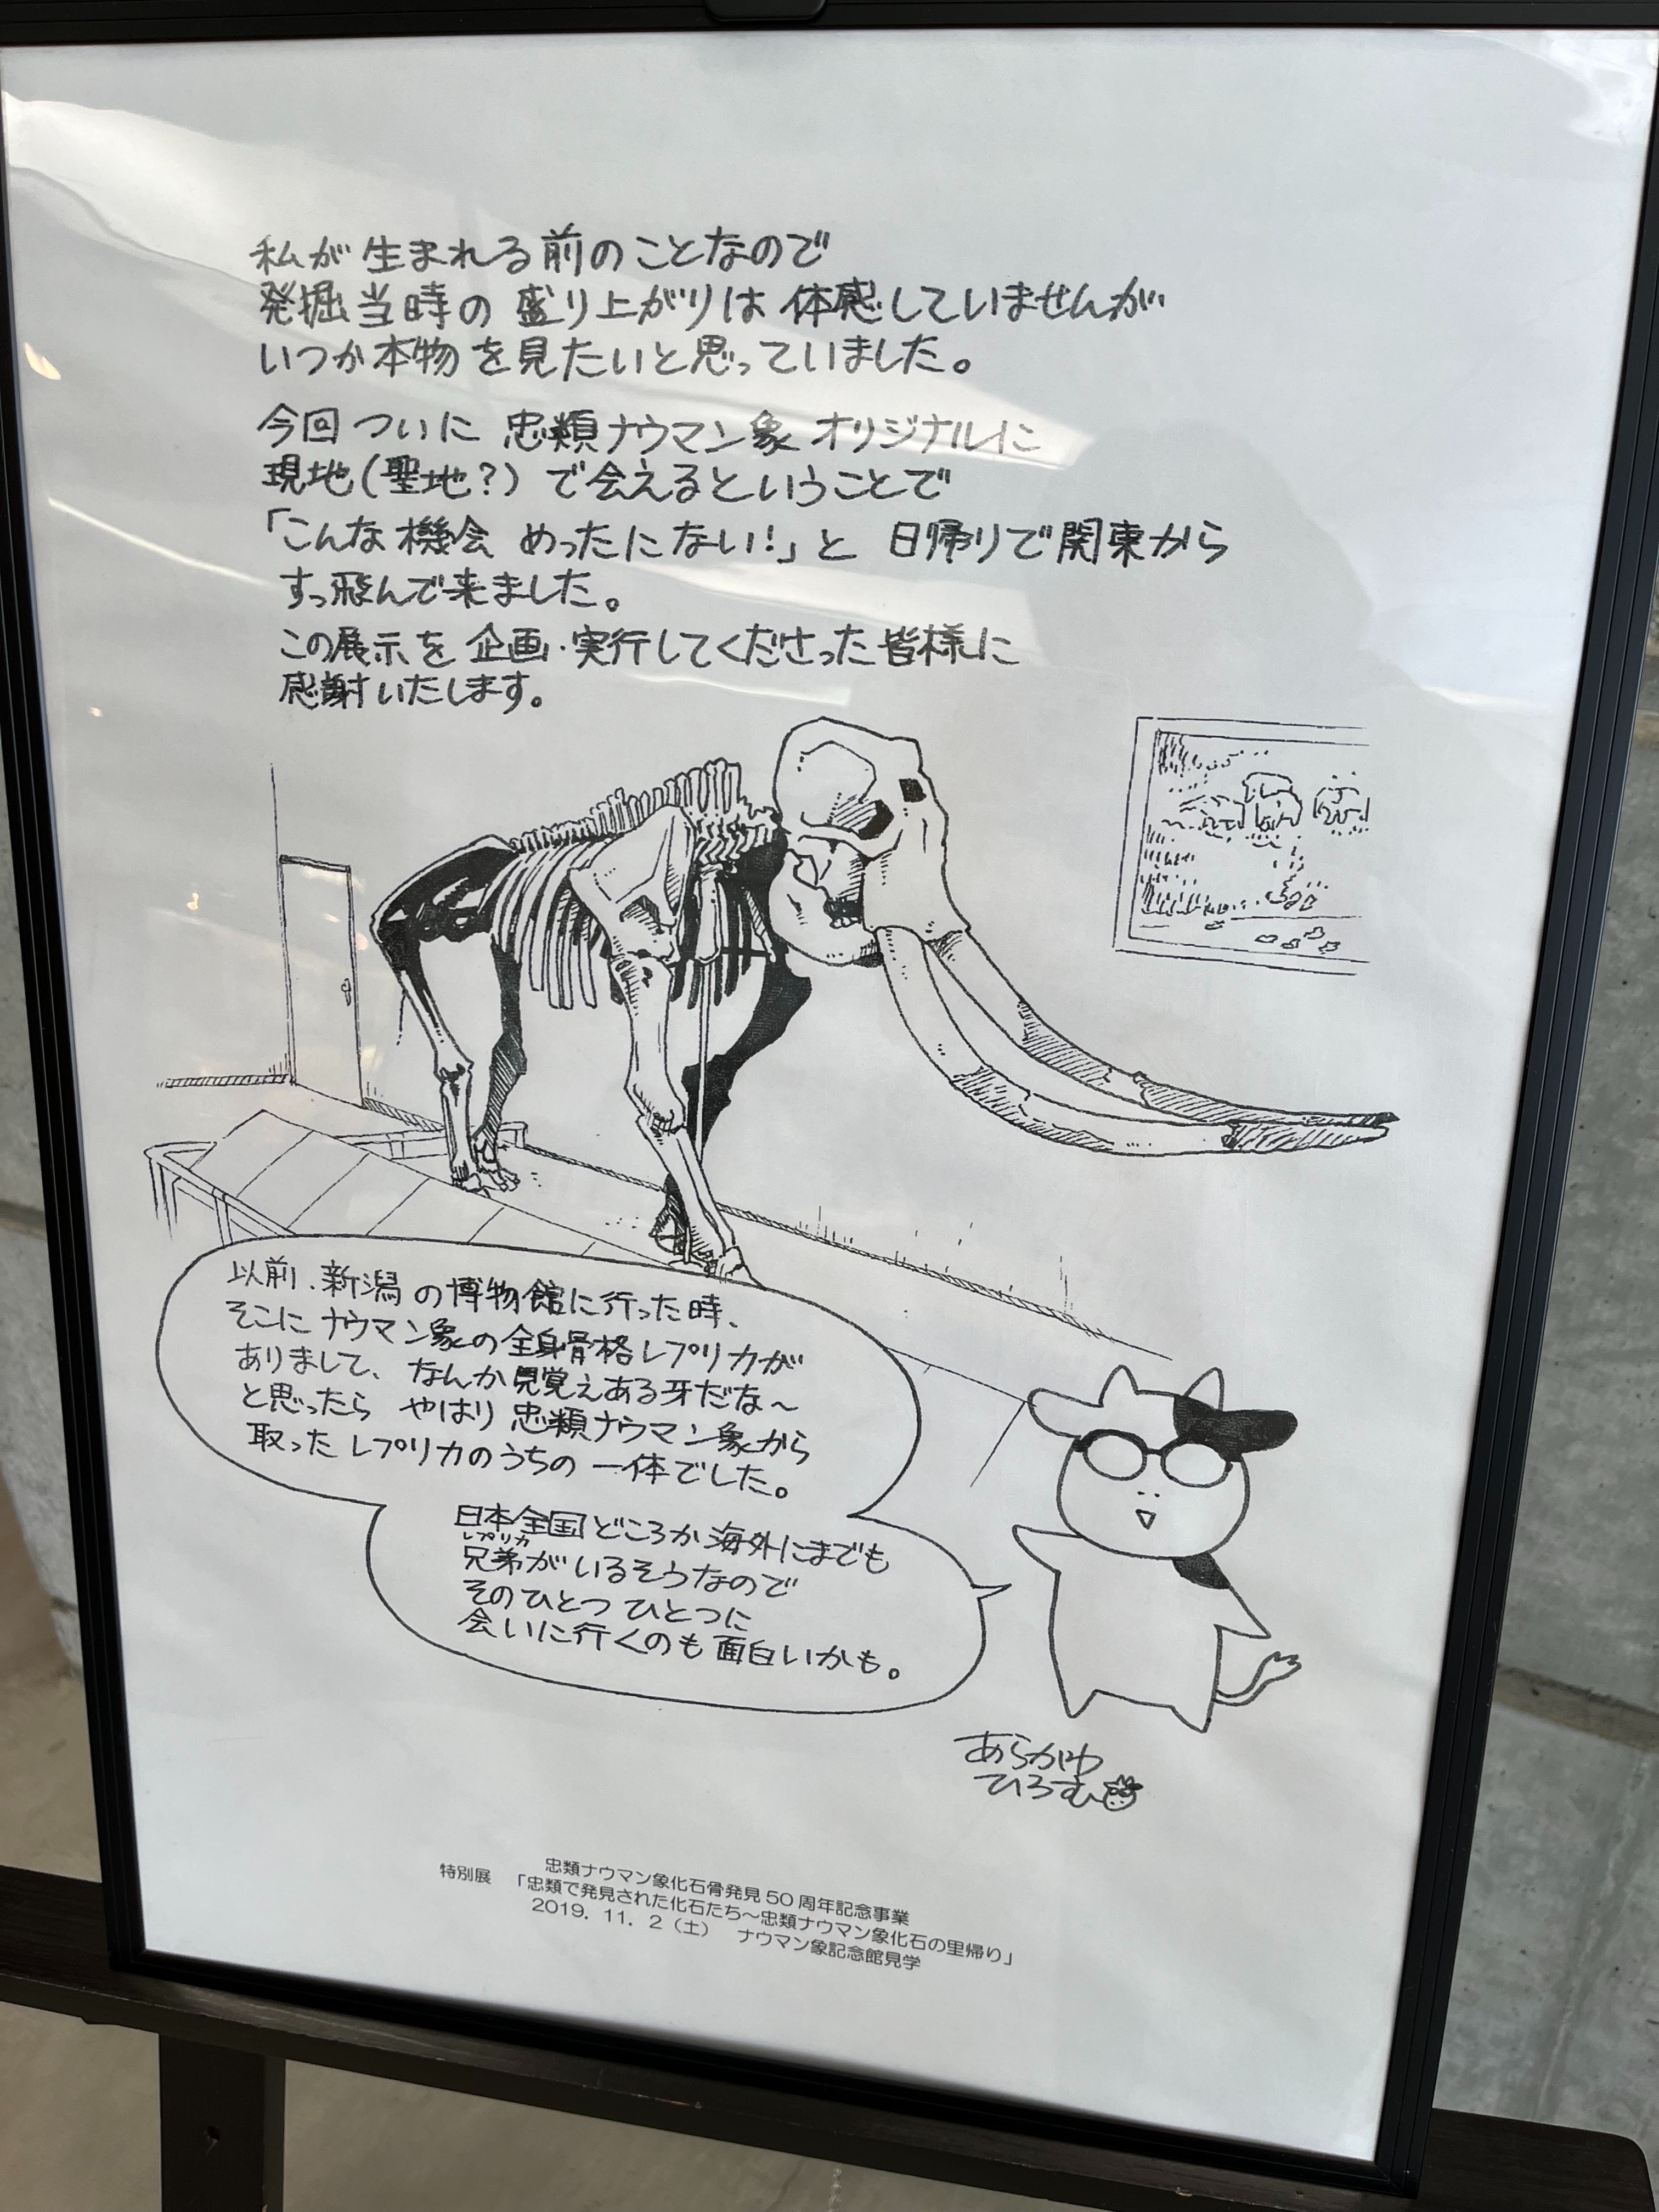 私が生まれる前のことなので
発掘当時の盛り上がりは体感していませんが
いつか本物を見たいと思っていました。
今回ついに忠類ナウマン象オリジナルに
現地(聖地?)で会えるということで
「こんな機会めったにない!」と日帰りで関東から
すっ飛んで来ました。
この展示を企画・実行してくださった皆様に
感謝いたします。
以前、新潟の博物館に行った時、
そこにナウマン象の全身骨格レプリカが
ありまして、なんか見覚えある牙だな〜
と思ったらやはり忠類ナウマン象から
取ったレプリカのうちの一体でした。
日本全国どころか海外にまでも
レプリカ
兄弟がいるそうなので
そのひとつひとつに
会いに行くのも面白いかも。
あらかわ
ひろむ
忠類ナウマン象化石骨発見50周年記念事業
特別展 「忠類で発見された化石たち〜忠類ナウマン象化石の里帰り」
2019.11.2(土) ナウマン象記念館見学